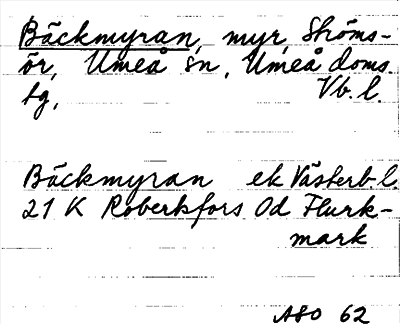 Bäckmyran, myr, Ströms-
ör, Umeå sn, Umeå doms.
tg, Vb. l.
Bäckmyran ek Västerb. l.
21 K Robertsfors Od Flurk-
mark
ASO 62